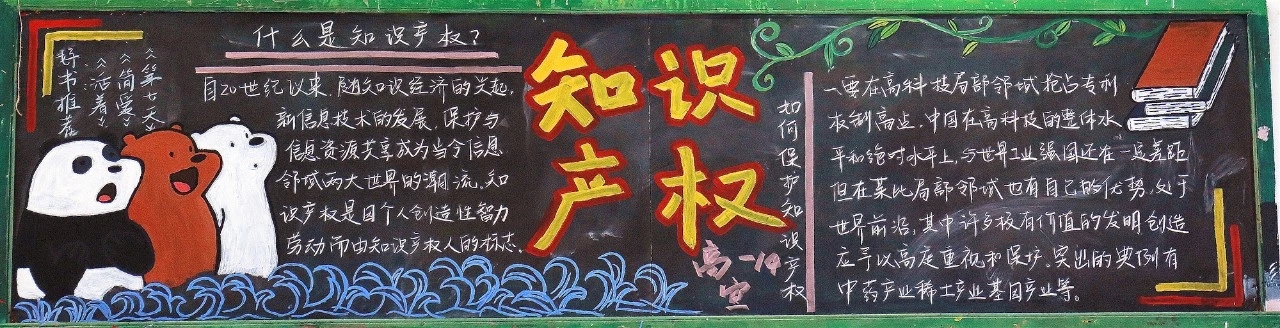 好书推荐
《活着》
《简爱》
《第七天》
什么是知识产权?
自20世纪以来,随知识经济的兴起,
新信息技术的发展,保护与
信息资源共享成为当今信息
领域两大世界的潮流。知
识产权是因个人创造性智力
劳动而由知识产权人的标志。
知识
产权
高一14
宣
如何保护知识产权
一要在高科技局部邻域抢占专利
权制高点,中国在高科技的整体水
平和绝对水平上,与世界工业强国还在一定差距
但在某此局部邻域也有自己的优势,处于
世界前沿,其中许多极有价值的发明创造
应予以高度重视和保护。突出的典例有
中药产业稀土产业基因产业等。